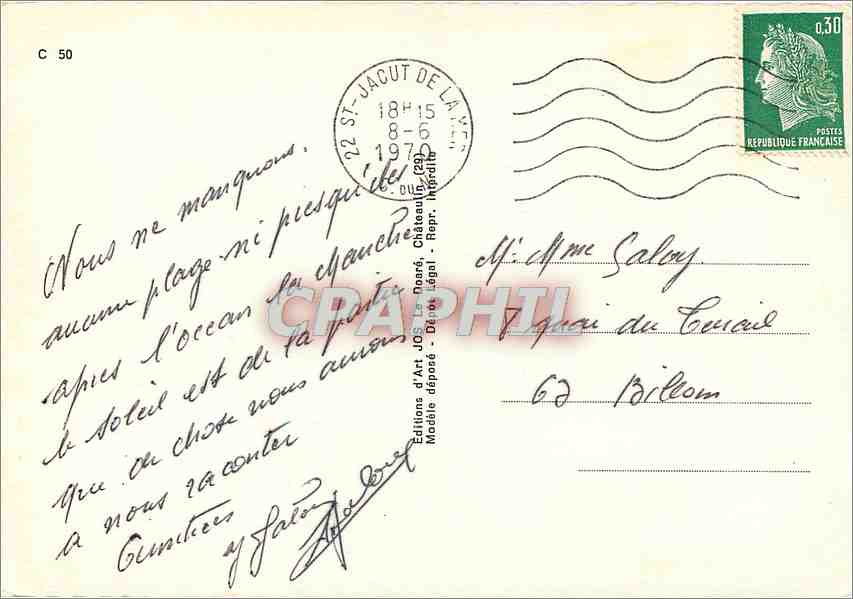 C 50
22 ST-JACUT DE LA MER
18H15
8-6
1970
0,30
POSTES
REPUBLIQUE FRANCAISE
Nous ne manquons
aucune plage ni presqu'iles
apres l'ocean la Manche
le soleil est de la partie
que de chose nous aurons
a nous raconter
Editions d'Art JOS Le Doaré, Châteaulin (29)
Modèle déposé - Dépôt Légal - Repr. Interdite
CPAPHIL
Mr Mme Galoy
quai du Terrail
63 Billom